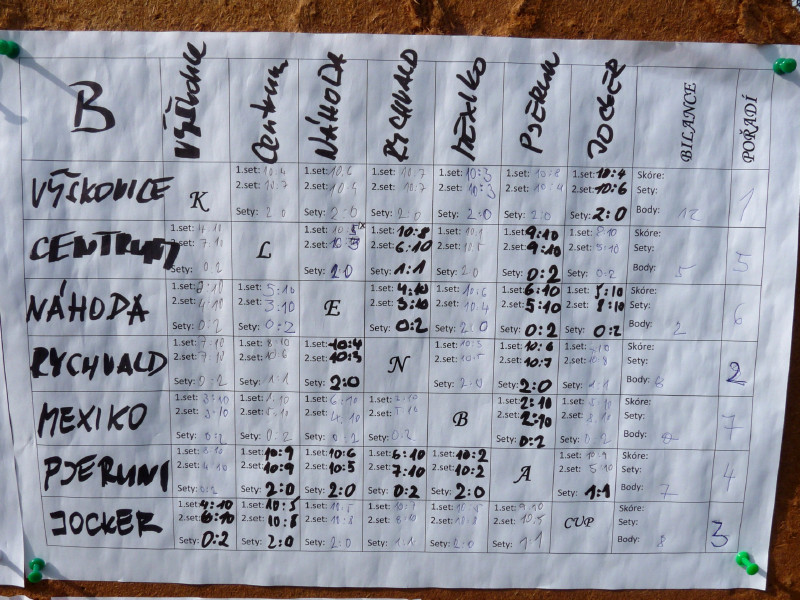 B VÝŠKOVICE CENTRUM NÁHODA RYCHVALD MEXIKO PJERUNI JOCKER BILANCE POŘADÍ
VÝŠKOVICE K 1.set: 10:4 1.set: 10:6 1.set: 10:7 1.set: 10:3 1.set: 10:8 1.set: 10:4 Skóre: 1
2.set: 10:7 2.set: 2.set: 10:7 2.set: 10:3 2.set: 10:4 2.set: 10:6 Sety:
Sety: 2:0 Sety: 2:0 Sety: 2:0 Sety: 2:0 Sety: 2:0 Sety: 2:0 Body: 12
CENTRUM 1.set: 4:10 L 1.set: 10:5 1.set: 10:8 1.set: 1.set: 9:10 1.set: 8:10 Skóre: 5
2.set: 7:10 2.set: 10:3 2.set: 6:10 2.set: 10:5 2.set: 9:10 2.set: 5:10 Sety:
Sety: 0:2 Sety: 2:0 Sety: 1:1 Sety: 2:0 Sety: 0:2 Sety: 0:2 Body: 5
NÁHODA 1.set: 1.set: 5:10 E 1.set: 4:10 1.set: 10:6 1.set: 6:10 1.set: 5:10 Skóre: 6
2.set: 2.set: 3:10 2.set: 3:10 2.set: 10:4 2.set: 5:10 2.set: 8:10 Sety:
Sety: 0:2 Sety: 0:2 Sety: 0:2 Sety: 2:0 Sety: 0:2 Sety: 0:2 Body: 2
RYCHVALD 1.set: 7:10 1.set: 8:10 1.set: 10:4 N 1.set: 10:3 1.set: 10:6 1.set: Skóre: 2
2.set: 7:10 2.set: 10:6 2.set: 10:3 2.set: 10:5 2.set: 10:7 2.set: 10:8 Sety:
Sety: 0:2 Sety: 1:1 Sety: 2:0 Sety: 2:0 Sety: 2:0 Sety: 1:1 Body: 8
MEXIKO 1.set: 3:10 1.set: 1.set: 6:10 1.set: B 1.set: 2:10 1.set: Skóre: 7
2.set: 3:10 2.set: 2.set: 4:10 2.set: 2.set: 2:10 2.set: 8:10 Sety:
Sety: 0:2 Sety: 0:2 Sety: 0:2 Sety: 0:2 Sety: 0:2 Sety: 0:2 Body: 0
PJERUNI 1.set: 8:10 1.set: 10:9 1.set: 10:6 1.set: 6:10 1.set: 10:2 A 1.set: 10:9 Skóre: 4
2.set: 4:10 2.set: 10:9 2.set: 10:5 2.set: 7:10 2.set: 10:2 2.set: 5:10 Sety:
Sety: 0:2 Sety: 2:0 Sety: 2:0 Sety: 0:2 Sety: 2:0 Sety: 1:1 Body: 7
JOCKER 1.set: 4:10 1.set: 10:5 1.set: 10:5 1.set: 1.set: 10:5 1.set: 9:10 CUP Skóre: 3
2.set: 6:10 2.set: 10:8 2.set: 2.set: 8:10 2.set: 10:8 2.set: 10:5 Sety:
Sety: 0:2 Sety: 2:0 Sety: 2:0 Sety: 1:1 Sety: 2:0 Sety: 1:1 Body: 8